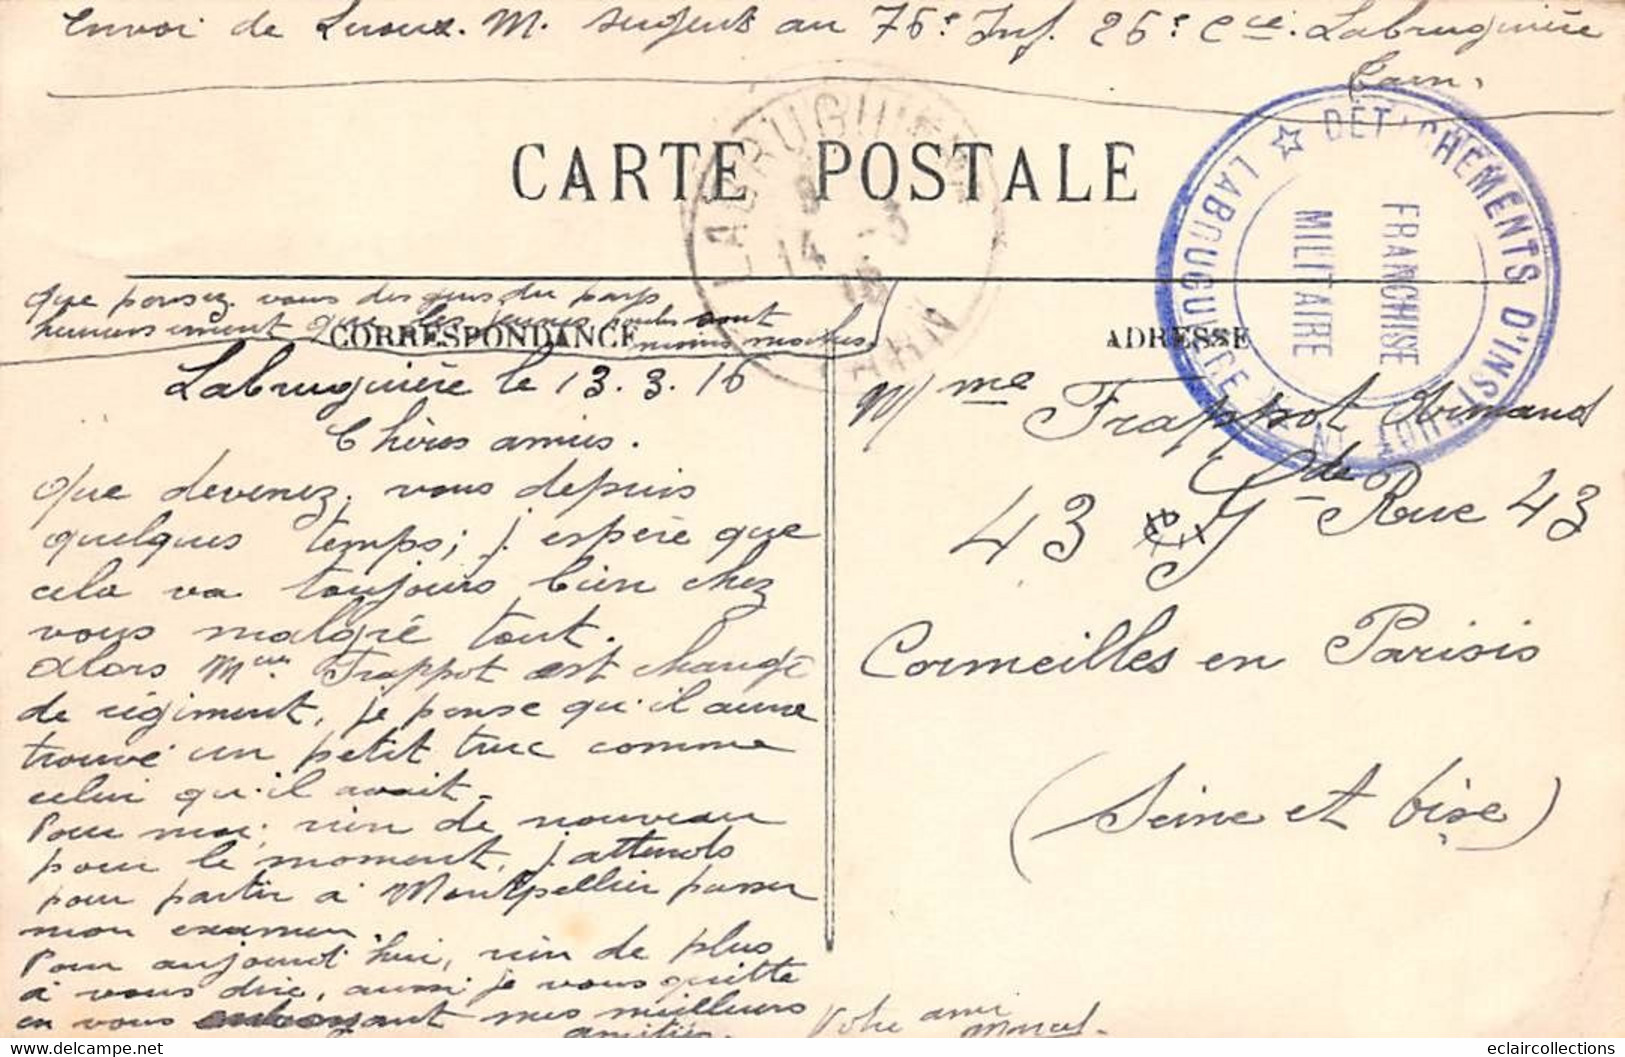 Envoi de M. sergent au 76e Inf. 26e Cie. Labruguière
Tarn.
CARTE POSTALE
LABRUGUIERE
14 -3
16
TARN
☆ DÉTACHEMENTS D'INSTRUCTION
LABRUGUIÈRE
FRANCHISE
MILITAIRE
que pensez vous des gens du pays
heureusement que les jeunes poules sont
moins moches.
CORRESPONDANCE
ADRESSE
Labruguière le 13.3.16
Chères amies.
Que devenez-vous depuis
quelques temps; j'espère que
cela va toujours bien chez
vous malgré tout.
Alors Mr Frappot est changé
de régiment, je pense qu'il aura
trouvé un petit truc comme
celui qu'il avait.
Pour moi, rien de nouveau
pour le moment, j'attends
pour partir à Montpellier passer
mon examen.
Pour aujourd'hui, rien de plus
à vous dire, aussi je vous quitte
en vous envoyant mes meilleurs
amitiés.
Votre ami
Marcel.
Mme Frappot Armand
43 Gde Rue 43
Cormeilles en Parisis
(Seine et Oise)
eclaircollections